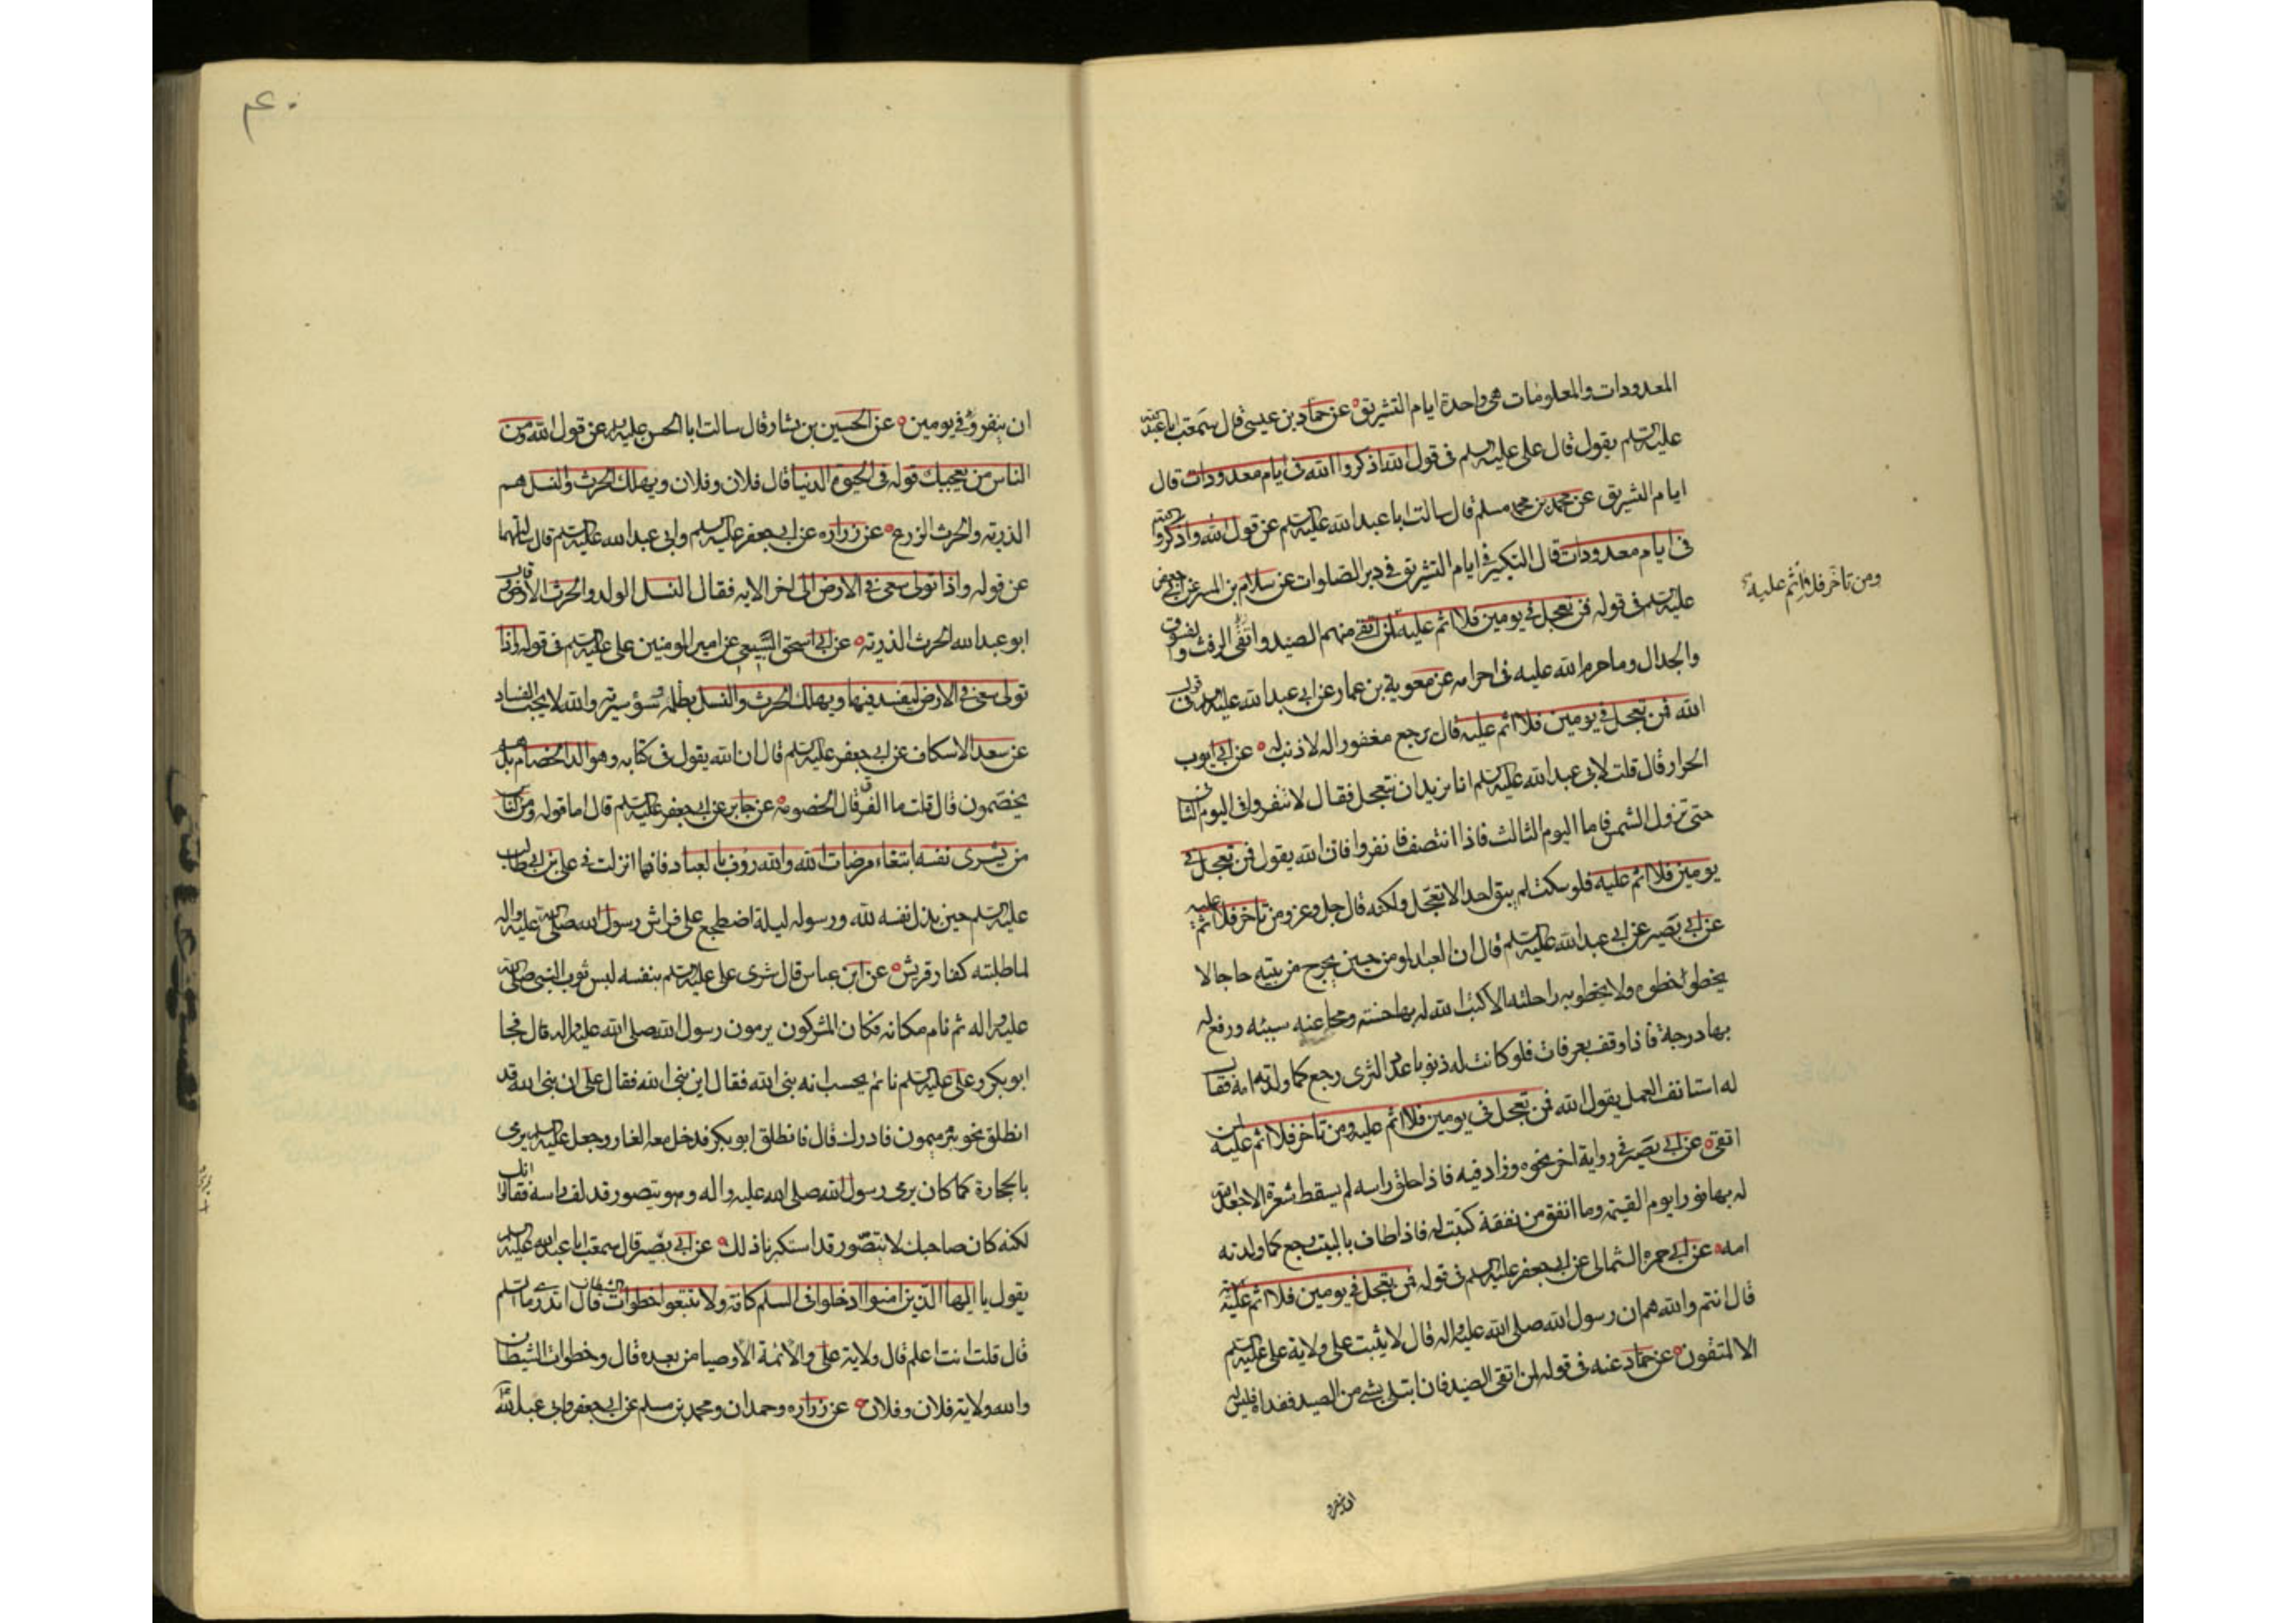 المعدودات والمعلومات هى واحدة ايام التشريق عن حماد بن عيسى قال سمعت ابا عبد الله
عليه السلم يقول قال على عليه السلم فى قول الله اذكروا الله فى ايام معدودات قال
ايام التشريق عن محمد بن محمد مسلم قال سالت ابا عبد الله عليه السلم عن قول الله واذكروا الله
فى ايام معدودات قال التكبير فى ايام التشريق فى دبر الصلوات عن سلام بن المستنير عن ابى جعفر
عليه السلم فى قوله فمن تعجل فى يومين فلا اثم عليه لمن اتقى منهم الصيد واتقى الرفث والفسوق
ومن تاخر فلا اثم عليه
والجدال وما حرم الله عليه فى احرامه عن معوية بن عمار عن ابى عبد الله عليه السلم فى قول
الله فمن تعجل فى يومين فلا اثم عليه قال يرجع مغفورا له لا ذنب له عن ابى ايوب
الحرار قال قلت لابى عبد الله عليه السلم انا نريد ان نتعجل فقال لا تنفروا فى اليوم الثانى
حتى تزول الشمس فاما اليوم الثالث فاذا انتصف فانفروا فان الله يقول فمن تعجل فى
يومين فلا اثم عليه فلو سكت لم يبق احد الا تعجل ولكنه قال جل وعز ومن تاخر فلا اثم عليه
عن ابى بصير عن ابى عبد الله عليه السلم قال ان العبد المومن حين يخرج من بيته حاجا لا
يخطو خطوه ولا يخطو به راحلته الا كتب الله له بها حسنه ومحا عنه سيئه ورفع له
بها درجة فاذا وقف بعرفات فلو كانت له ذنوبا عدد الثرى رجع كما ولدته امه فقال
له استانف العمل يقول الله فمن تعجل فى يومين فلا اثم عليه ومن تاخر فلا اثم عليه لمن
اتقى عن ابى بصير فى رواية اخر نحوه وزاد فيه فاذا حلق راسه لم يسقط شعرة الا جعل الله
له بها نورا يوم القيمة وما انفق من نفقة كتبت له فاذا طاف بالبيت رجع كما ولدته
امه عن ابى حمزه الثمالى عن ابى جعفر عليه السلم فى قوله فمن تعجل فى يومين فلا اثم عليه
قال انتم والله هم ان رسول الله صلى الله عليه واله قال لا يثبت على ولاية على عليه السلم
الا المتقون عن حماد عنه فى قوله لمن اتقى الصيد فان ابتلى بشى من الصيد ففداه فليس له
ان ينفر
ان ينفروا فى يومين عن الحسين بن بشار قال سالت ابا الحسن عليه السلم عن قول الله ومن
الناس من يعجبك قوله فى الحيوة الدنيا قال فلان وفلان ويهلك الحرث والنسل هم
الذريه والحرث الزرع عن زراره عن ابى جعفر عليه السلم وابى عبد الله عليه السلم قال سالتهما
عن قوله واذا تولى سعى فى الارض الى اخر الايه فقال النسل الولد والحرث الارض وقال
ابو عبد الله الحرث الذريه عن ابى اسحق السبيعى عن امير المومنين على عليه السلم فى قوله واذا
تولى سعى فى الارض ليفسد فيها ويهلك الحرث والنسل بظلمه وسؤ سيرته والله لا يحب الفساد
عن سعد الاسكاف عن ابى جعفر عليه السلم قال ان الله يقول فى كتابه وهو الد الخصام بل هم
يختصمون قال قلت ما الفرق قال الخصومه عن جابر عن ابى جعفر عليه السلم قال اما قوله ومن الناس
من يشرى نفسه ابتغاء مرضات الله والله رؤف بالعباد فانما انزلت فى على بن ابى طالب
عليه السلم حين بذل نفسه لله ورسوله ليلة اضطجع على فراش رسول الله صلى الله عليه واله
لما طلبته كفار قريش عن ابن عباس قال شرى على عليه السلم بنفسه لبس ثوب النبى صلى الله
عليه واله ثم نام مكانه فكان المشركون يرمون رسول الله صلى الله عليه واله قال فجا
ابو بكر وعلى عليه السلم نائم يحسب انه نبى الله فقال اين نبى الله فقال على ان نبى الله قد
انطلق نحو بئر ميمون فادرك قال فانطلق ابو بكر فدخل معه الغار وجعل عليه السلم يرمى
بالحجارة كما كان يرمى رسول الله صلى الله عليه واله وهو يتضور قد لف راسه فقالوا انك
لكنه كان صاحبك لا يتضور قد استكبرنا ذلك عن ابى بصير قال سمعت ابا عبد الله عليه السلم
يقول يا ايها الذين امنوا ادخلوا فى السلم كافة ولا تتبعوا خطوات الشيطان قال اتدرى ما السلم
قال قلت انت اعلم قال ولاية على والائمة الاوصيا من بعده قال وخطوات الشيطان
والله ولاية فلان وفلان عن زراره وحمدان ومحمد بن مسلم عن ابى جعفر وابى عبد الله